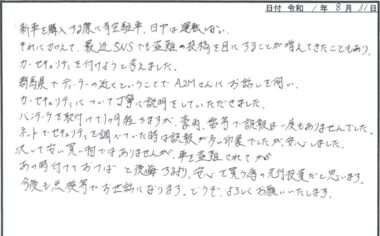 日付 令和 7年 8月 31日
新車を購入する際に青空駐車、日中は運転しない。
それに加えて、最近SNSでも盗難の投稿を目にすることが増えてきたこともあり、
カーセキュリティを付けようと考えました。
群馬県でディーラーの近くということでA2Mさんにお話しを伺い、
カーセキュリティについて丁寧に説明をしていただきました。
パンテーラを取付けて1ヶ月経ちますが、豪雨、雷等で誤報は一度もありませんでした。
ネットでセキュリティを調べていた時は誤報が多い印象でしたが、安心しました。
決して安い買い物ではありませんが、車を盗難されてから
あの時付けておけば と後悔するより、安心を買う為の先行投資だと思います。
今後も点検等でお世話になります。どうぞ、よろしくお願いいたします。